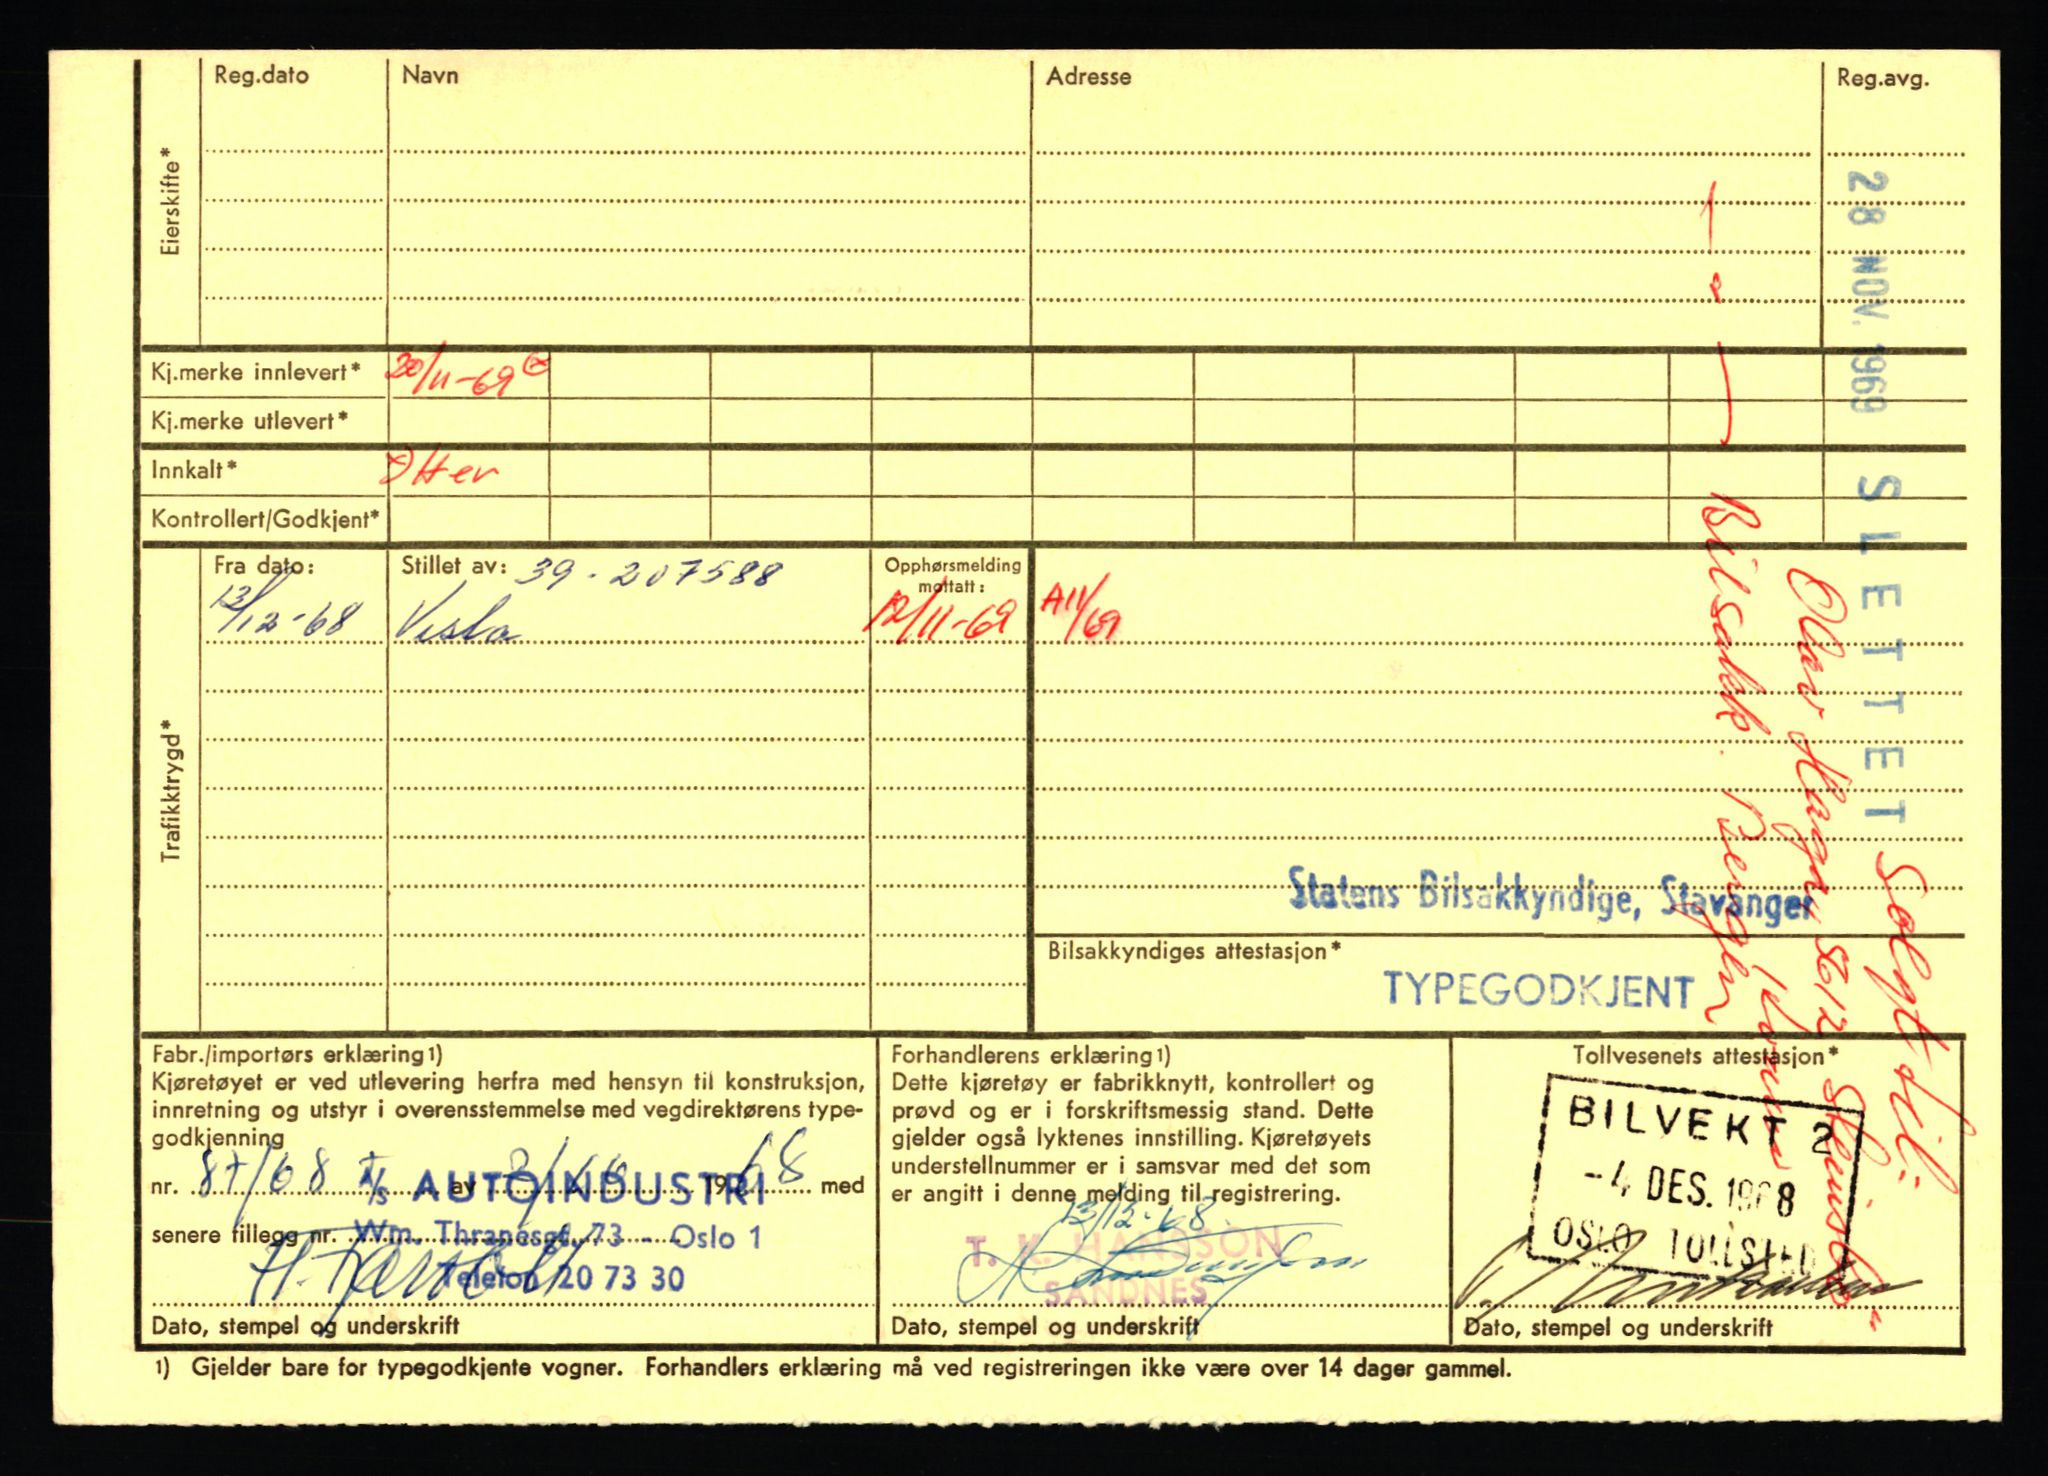 Reg.dato Navn Adresse Reg.avg.
Eierskifte*
Kj.merke innlevert* 20/11-69
Kj.merke utlevert*
Innkalt* Etter
Kontrollert/Godkjent*
Trafikktrygd*
Fra dato: Stillet av: 39-207588 Opphørsmelding mottatt:
13/12-68 Vesta 12/11-69 A11/69
28 NOV. 1969 SLETTET
Solgt til:
Olav Haugn
Bilsakk. Bergen
Statens Bilsakkyndige, Stavanger
Bilsakkyndiges attestasjon*
TYPEGODKJENT
Fabr./importørs erklæring 1)
Kjøretøyet er ved utlevering herfra med hensyn til konstruksjon,
innretning og utstyr i overensstemmelse med vegdirektørens type-
godkjenning
nr. 87/68 av 19 68 med
senere tillegg nr.
A/S AUTOINDUSTRI
Wm. Thranesgt. 73 - Oslo 1
Telefon 20 73 30
Dato, stempel og underskrift
Forhandlerens erklæring 1)
Dette kjøretøy er fabrikknytt, kontrollert og
prøvd og er i forskriftsmessig stand. Dette
gjelder også lyktenes innstilling. Kjøretøyets
understellnummer er i samsvar med det som
er angitt i denne melding til registrering.
13/12-68
T. K. HANSSON
SANDNES
Dato, stempel og underskrift
Tollvesenets attestasjon*
BILVEKT 2
-4 DES. 1968
OSLO TOLLSTED
Dato, stempel og underskrift
1) Gjelder bare for typegodkjente vogner. Forhandlers erklæring må ved registreringen ikke være over 14 dager gammel.